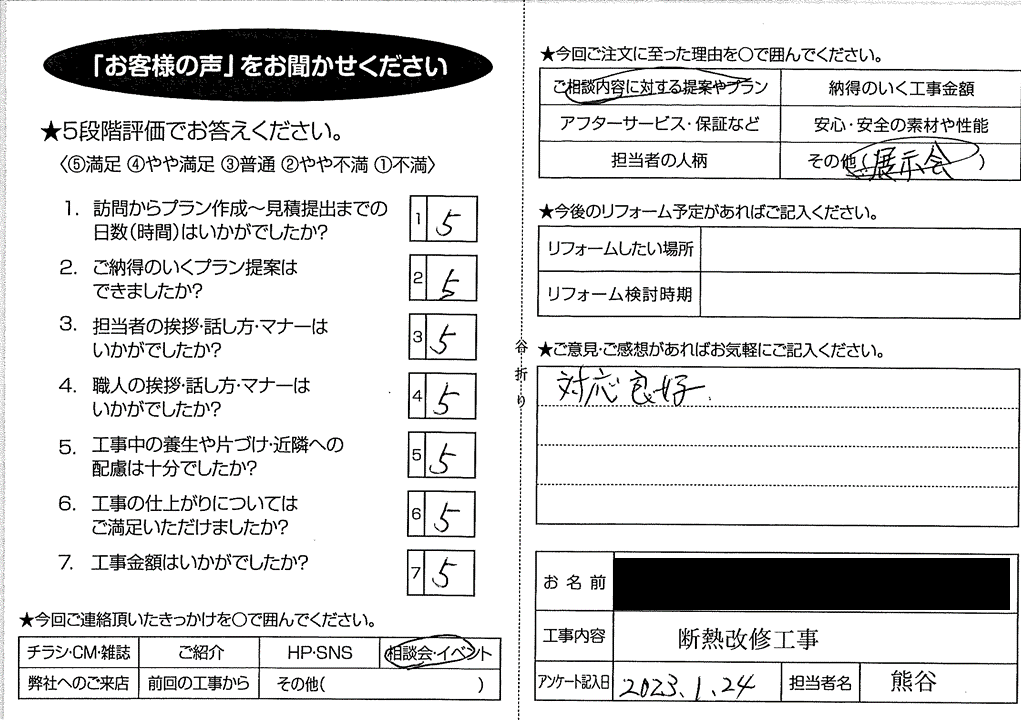 「お客様の声」をお聞かせください
★5段階評価でお答えください。
〈⑤満足 ④やや満足 ③普通 ②やや不満 ①不満〉
1. 訪問からプラン作成～見積提出までの
日数(時間)はいかがでしたか?
1 5
2. ご納得のいくプラン提案は
できましたか?
2 5
3. 担当者の挨拶・話し方・マナーは
いかがでしたか?
3 5
4. 職人の挨拶・話し方・マナーは
いかがでしたか?
4 5
5. 工事中の養生や片づけ・近隣への
配慮は十分でしたか?
5 5
6. 工事の仕上がりについては
ご満足いただけましたか?
6 5
7. 工事金額はいかがでしたか?
7 5
★今回ご連絡頂いたきっかけを○で囲んでください。
チラシ・CM・雑誌 ご紹介 HP・SNS 相談会・イベント
弊社へのご来店 前回の工事から その他( )
谷折り
★今回ご注文に至った理由を○で囲んでください。
ご相談内容に対する提案やプラン 納得のいく工事金額
アフターサービス・保証など 安心・安全の素材や性能
担当者の人柄 その他(展示会)
★今後のリフォーム予定があればご記入ください。
リフォームしたい場所
リフォーム検討時期
★ご意見・ご感想があればお気軽にご記入ください。
対応良好.
お名前
工事内容 断熱改修工事
アンケート記入日 2023.1.24 担当者名 熊谷